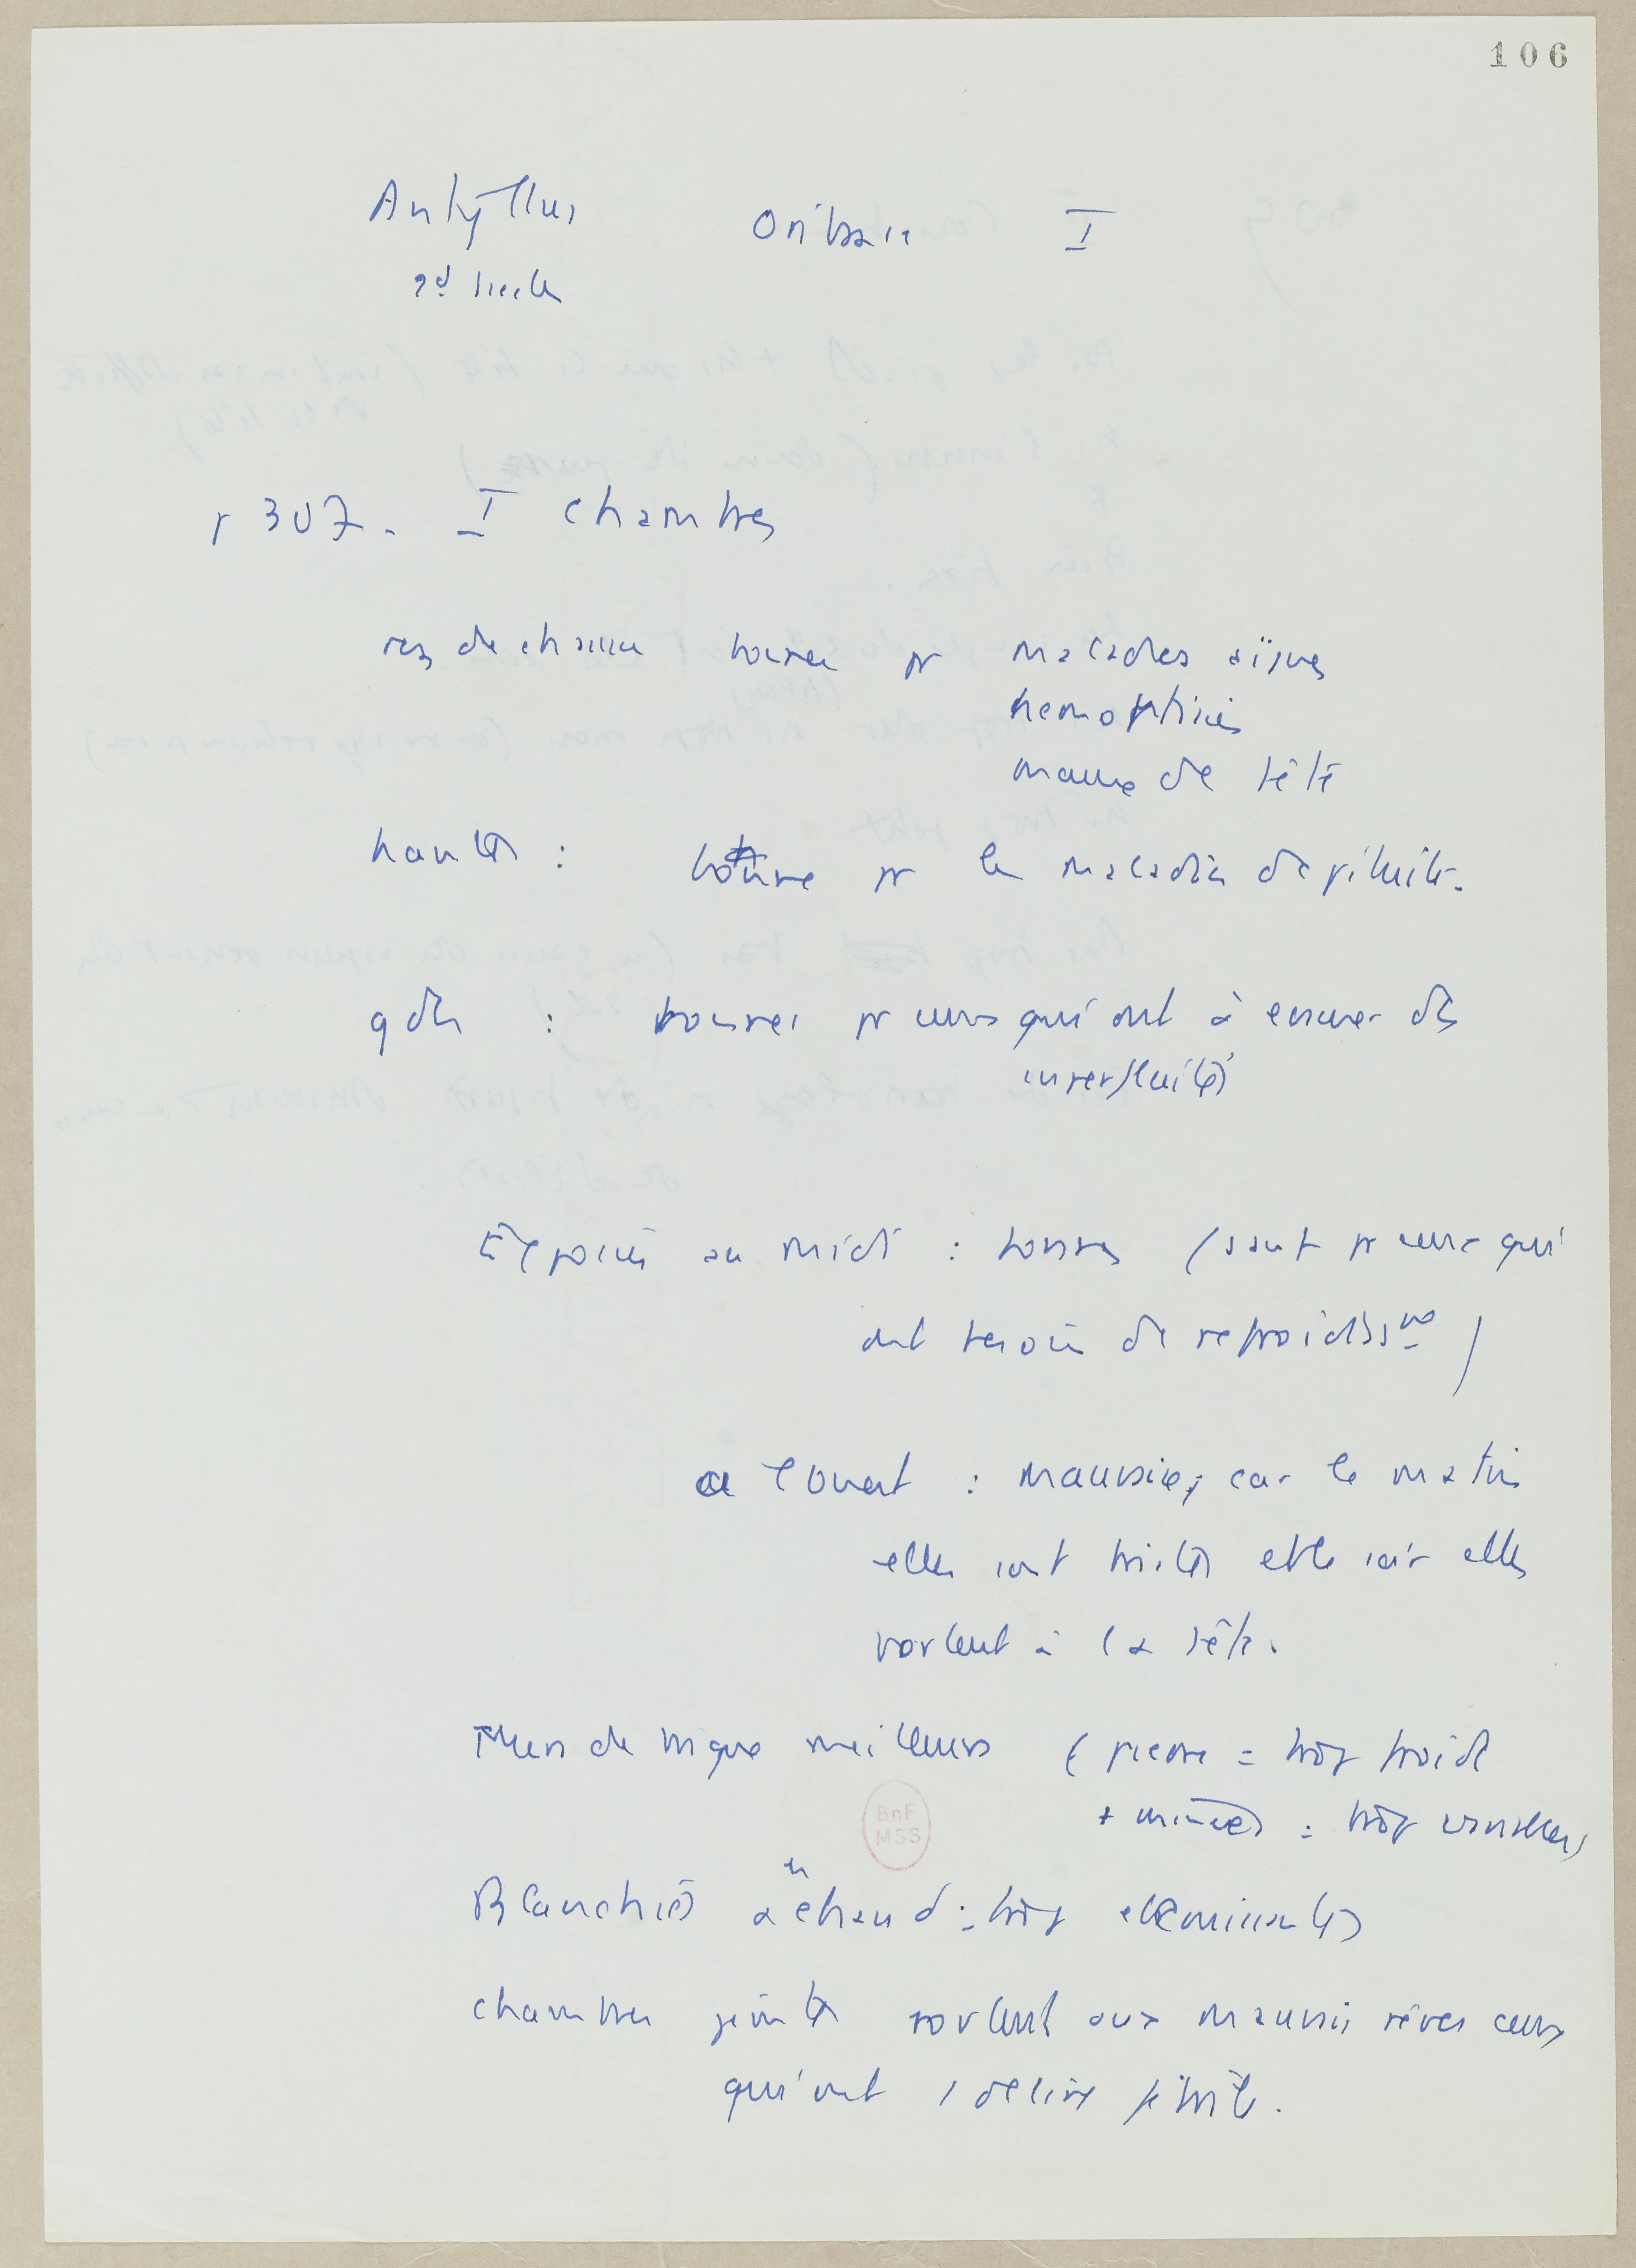 106
Antyllus Oribase I
2d siecle
p 307. I Chambres
rez de chaussee bonnes pr maladies aigues
hemoptisies
maux de tête
hautes : bonne pr les maladies de pituite.
gdes : bonnes pr ceux qui ont à evacuer des
superfluités
Exposées au midi : bonnes (sauf pr ceux qui
ont besoin de refroidisst)
a l'ouest : mauvaises car le matin
elles sont tristes et le soir elles
portent à la tête.
Murs de brique meilleurs (pierre = trop froid
: trop
Blanchies a chaud = trop
chambres peintes portent aux mauvais rêves ceux
qui ont delire fébrile.
BnF
MSS